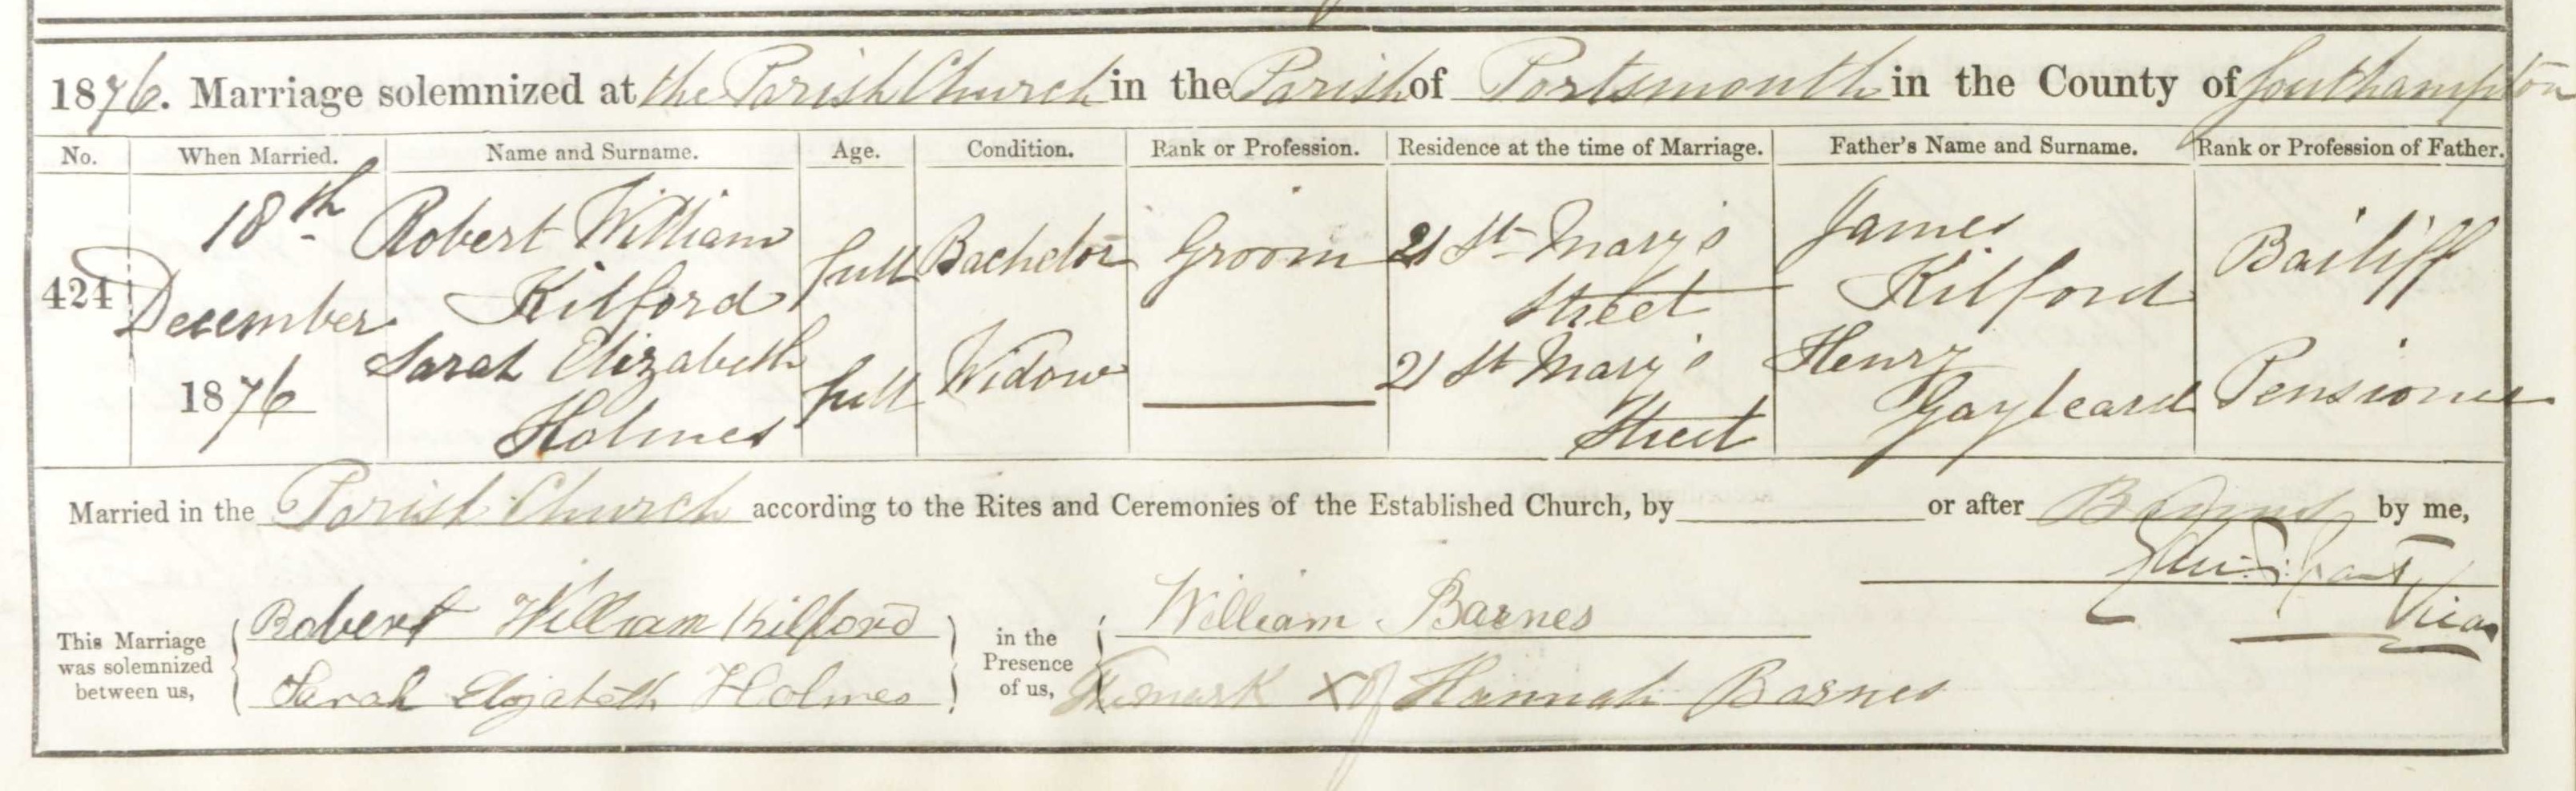 1876. Marriage solemnized at the Parish Church in the Parish of Portsmouth in the County of Southampton
No. When Married. Name and Surname. Age. Condition. Rank or Profession. Residence at the time of Marriage. Father's Name and Surname. Rank or Profession of Father.
424
18th
December
1876
Robert William
Kilford
full
Bachelor
Groom
21 St Mary's
Street
James
Kilford
Bailiff
Sarah Elizabeth
Holmes
full
Widow
21 St Mary's
Street
Henry
Gayleard
Pensioner
Married in the Parish Church according to the Rites and Ceremonies of the Established Church, by or after Banns by me,
Grant
Vicar
This Marriage
was solemnized
between us,
Robert William Kilford
Sarah Elizabeth Holmes
in the
Presence
of us,
William Barnes
The mark X of Hannah Barnes